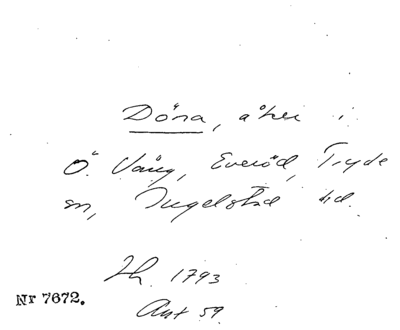 Dösa, åker i
Ö. Vång, Everöd, Tryde
sn, Ingelstad hd.
Lh. 1793
Akt 59.
Nr 7672.